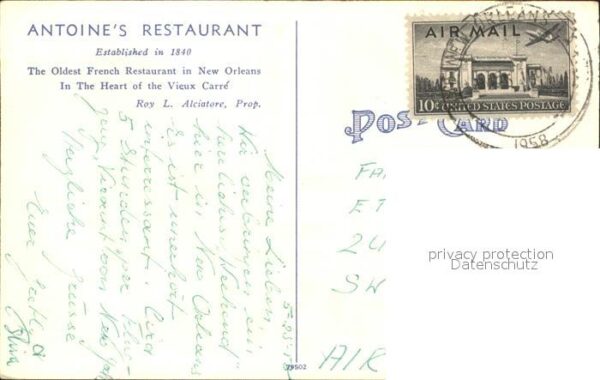 ANTOINE'S RESTAURANT
Established in 1840
The Oldest French Restaurant in New Orleans
In The Heart of the Vieux Carré
Roy L. Alciatore, Prop.
AIR MAIL
10¢ UNITED STATES POSTAGE
1958
POST CARD
Meine Lieben,
Wir verbringen ein
herrliches Weekend
hier in New Orleans
Es ist unerhört
interressant. Circa
5 Stunden per Flug-
von New York
Herzliche Grüsse
Euer
FA
ET
24
SW
AIR
privacy protection
Datenschutz